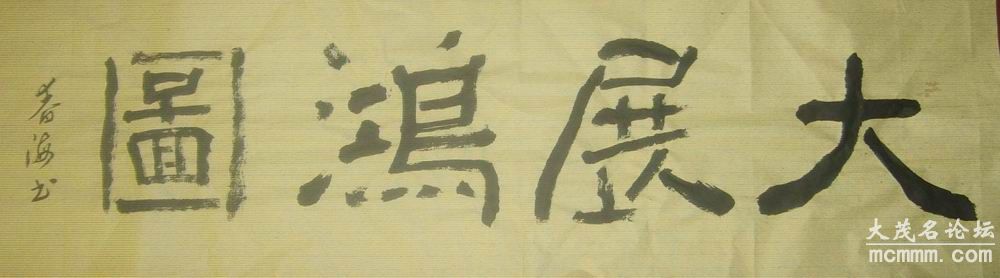 大展鴻圖
春海书
大茂名论坛
mcmmm.com